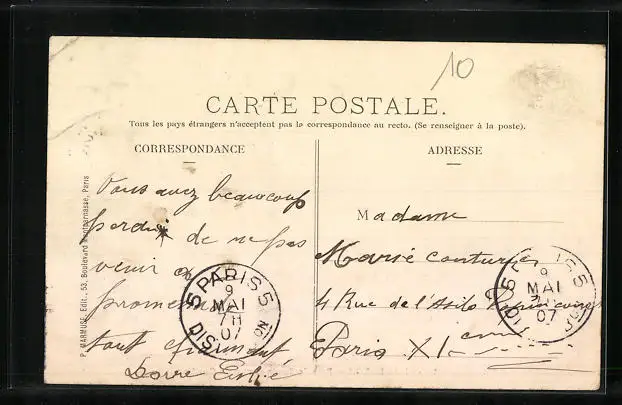 10
CARTE POSTALE.
Tous les pays étrangers n'acceptent pas la correspondance au recto. (Se renseigner à la poste).
CORRESPONDANCE
ADRESSE
P. MARMUSE, Edit., 53, Boulevard Montparnasse, Paris
Vous avez beaucoup
perdu de ne pas
venir en
tout
Madame
Marie Couturier
4 Rue de l'Asile
Paris XI
PARIS 5
9
MAI
7H
07
DIS
9
MAI
07